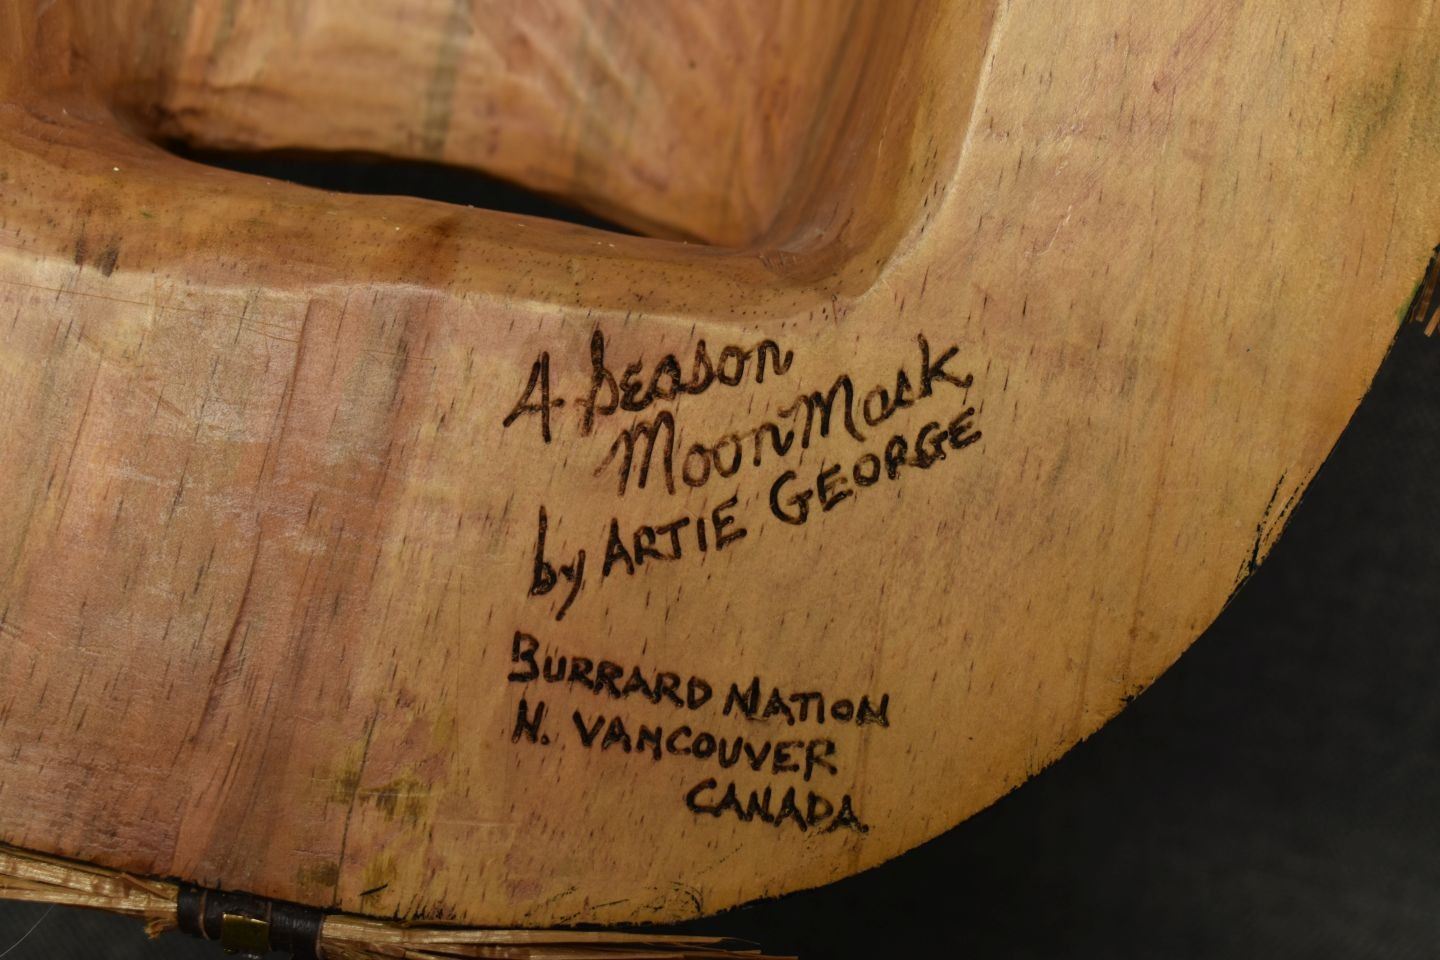 A Season
Moon Mask
by ARTIE GEORGE
BURRARD NATION
N. VANCOUVER
CANADA